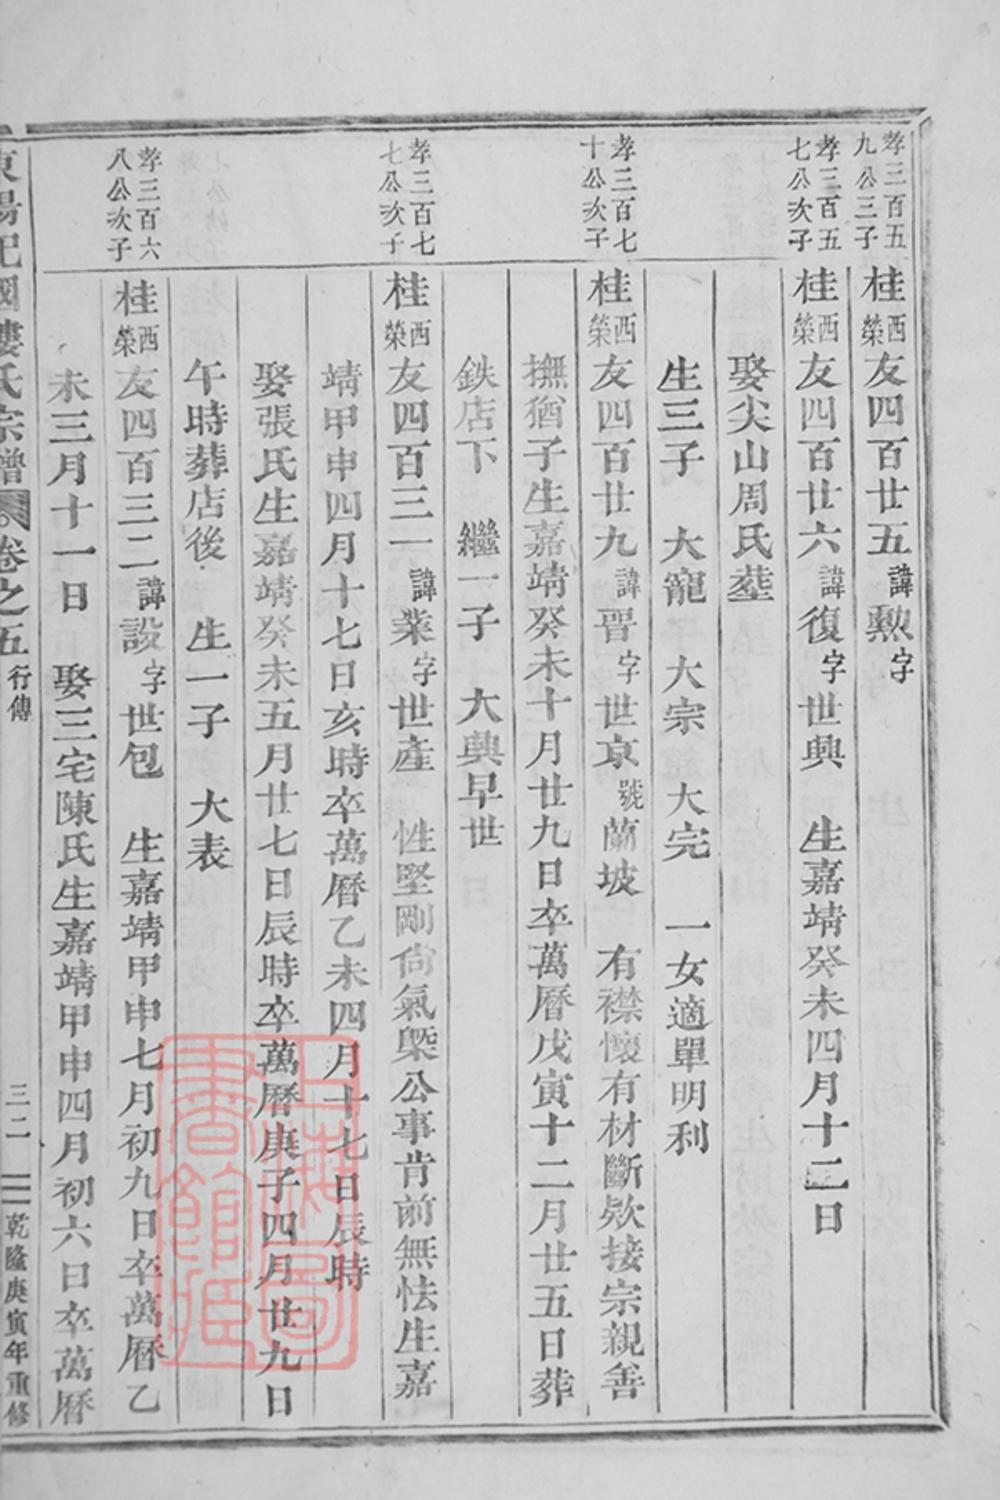 孝三百五
九公三子
桂西榮友四百廿五諱勲字
孝三百五
七公次子
桂西榮友四百廿六諱復字世興 生嘉靖癸未四月十二日
娶尖山周氏塟
生三子 大寵 大宗 大完 一女適單明利
孝三百七
十公次子
桂西榮友四百廿九諱晋字世京號蘭坡 有襟懷有材斷欵接宗親善
撫猶子生嘉靖癸未十月廿九日卒萬曆戊寅十二月廿五日葬
鉄店下 繼一子 大興早世
孝三百七
七公次子
桂西榮友四百三一諱業字世產 性堅剛尙氣槩公事肯前無怯生嘉
靖甲申四月十七日亥時卒萬曆乙未四月十七日辰時
娶張氏生嘉靖癸未五月廿七日辰時卒萬曆庚子四月廿九日
午時葬店後 生一子 大表
孝三百六
八公次子
桂西榮友四百三二諱設字世包 生嘉靖甲申七月初九日卒萬曆乙
未三月十一日 娶三宅陳氏生嘉靖甲申四月初六日卒萬曆
東陽杞國樓氏宗譜 卷之五 行傳 三二 乾隆庚寅年重修
上海圖書館藏